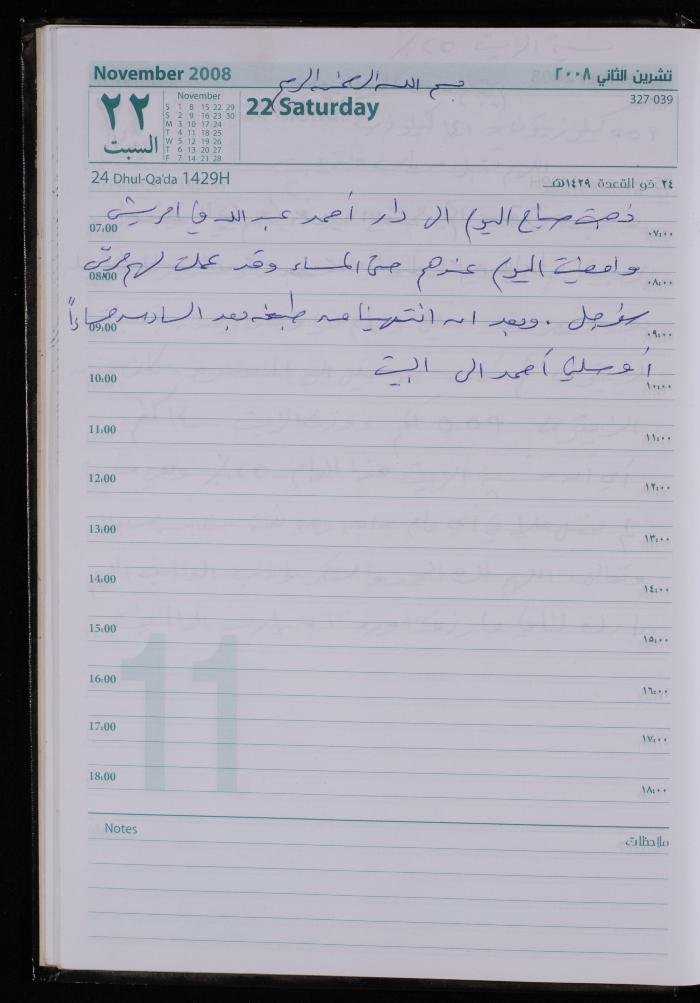 November 2008
تشرين الثاني ٢٠٠٨
بسم الله الرحمن الرحيم
٢٢
السبت
November
S 1 8 15 22 29
S 2 9 16 23 30
M 3 10 17 24
T 4 11 18 25
W 5 12 19 26
T 6 13 20 27
F 7 14 21 28
22 Saturday
327-039
24 Dhul-Qa'da 1429H
٢٤ ذو القعدة ١٤٢٩هـ
ذهبت صباح اليوم الى دار أحمد عبد الله في
07:00 ٠٧:٠٠
وامضيت اليوم عندهم حتى المساء وقد عملت لهم مربى
08:00 ٠٨:٠٠
سفرجل . وبعد ان انتهينا من طبخه بعد السادسة مساءاً
09:00 ٠٩:٠٠
أوصلني أحمد الى البيت
10:00 ١٠:٠٠
11:00 ١١:٠٠
12:00 ١٢:٠٠
13:00 ١٣:٠٠
14:00 ١٤:٠٠
15:00 ١٥:٠٠
16:00 ١٦:٠٠
17:00 ١٧:٠٠
18:00 ١٨:٠٠
11
Notes
ملاحظات